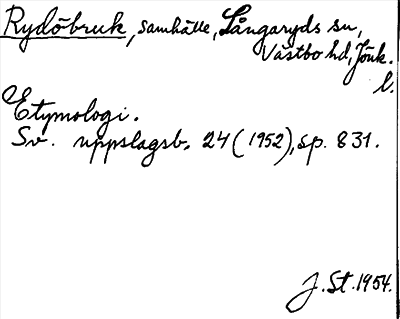 Rydöbruk, samhälle, Långaryds sn,
Västbo hd, Jönk.
l.
Etymologi.
Sv. uppslagsb. 24 (1952), sp. 831.
J. St. 1954.